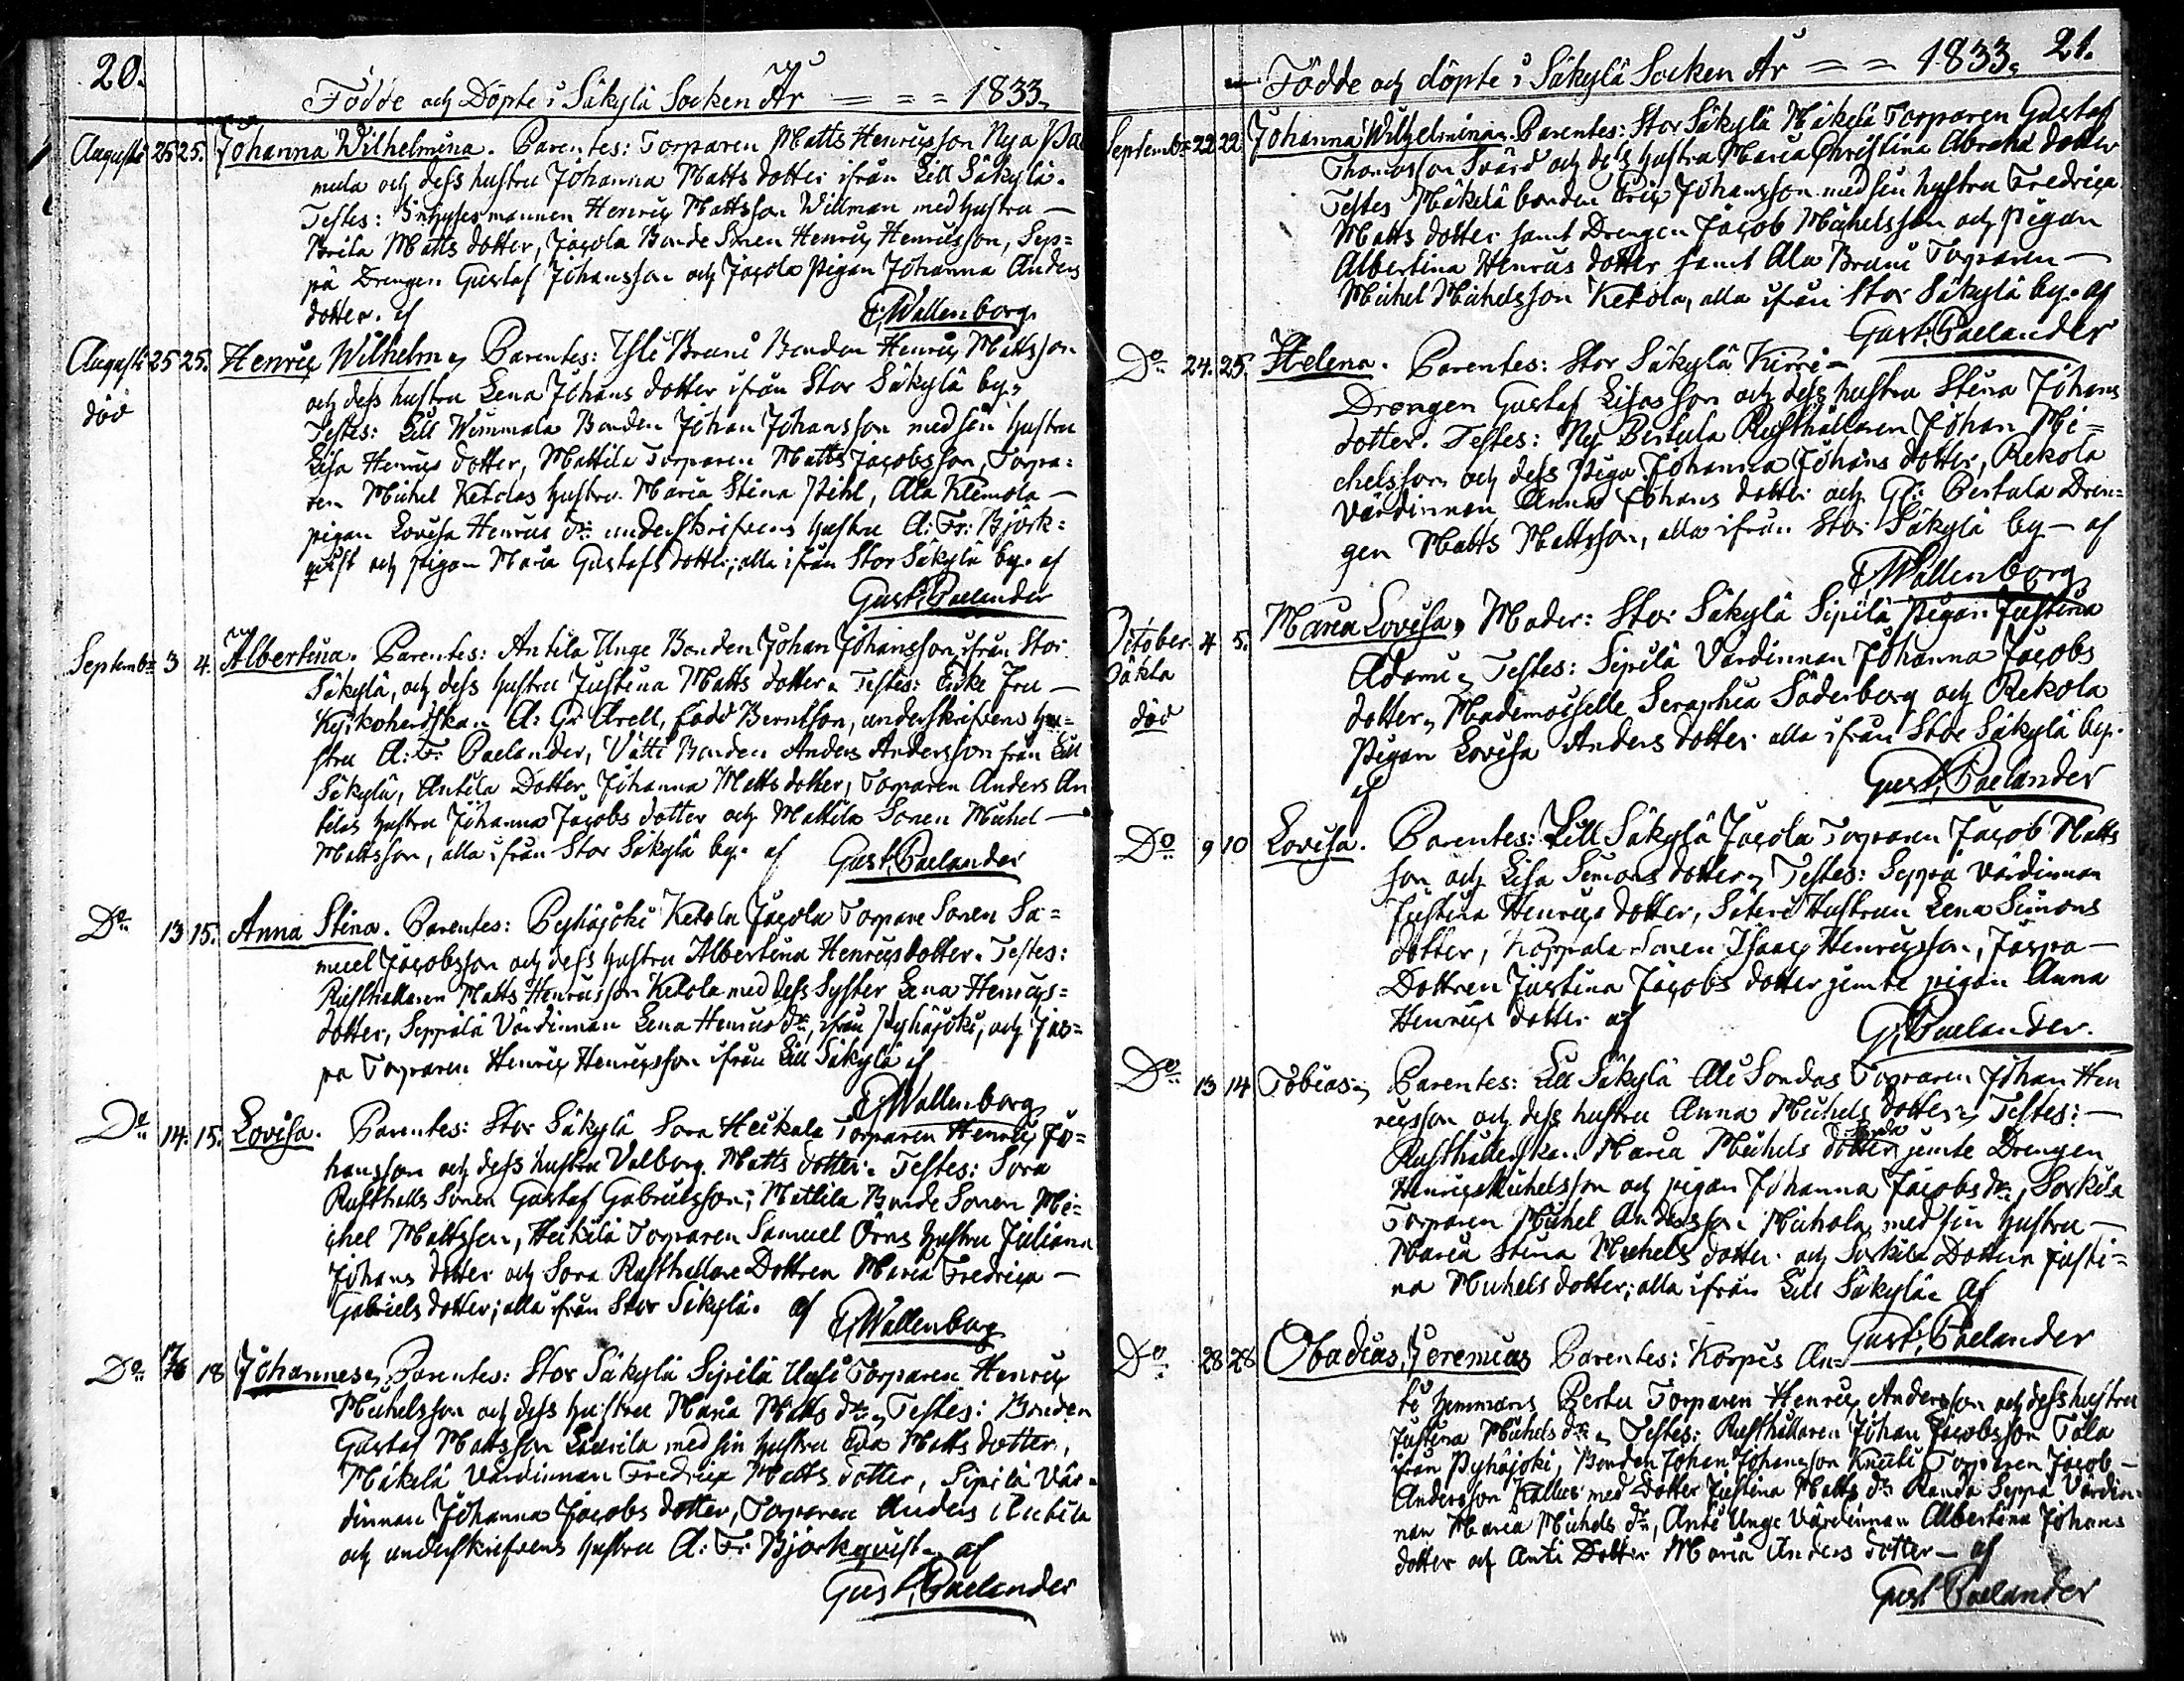 20.
Födde och Döpte i Säkylä Socken År = = = 1833.
Augusti 25 25. Johanna Wilhelmina. Parentes: Torparen Matts Henricsson Nya Pa
mela och dess hustru Johanna Matts dotter ifrån Lill Säkylä.
Testes: Inhyses mannen Henric Mattsson Willman med hustru —
Brita Matts dotter, Jacola Bonde Sonen Henric Henricsson, Sep=
pä Drengen Gustaf Johansson och Jacola Pigan Johanna Anders
dotter. af E. Wallenborg.
Augusti 25 25. Henric Wilhelm, Parentes: Yli Bruni Bonden Henric Mattsson
död
och dess hustru Lena Johans dotter ifrån Stor Säkylä by,
Testes: Lill Wimmala Bonden Johan Johansson med sin hustru
Lisa Henrics dotter, Mattila Torparen Matts Jacobsson, Torpa=
ren Michel Ketolas hustru Maria Stina Pihl, Ala Klemola —
pigan Lovisa Henrics dr: underskrifvens hustru A: Fr: Björk=
quist och pigan Maria Gustafs dotter; alla ifrån Stor Säkylä by. af
Gust. Paelander
Septembr 3 4. Albertina. Parentes: Antila Unge Bonden Johan Johansson ifrån Stor
Säkylä, och dess hustru Justina Matts dotter. Testes: Enke Fru —
Kyrkoherdskan A: Gr: Arell, född Berntson, underskrifvens hu=
stru A: Fr: Paelander, Vätti Bonden Anders Andersson från Lill
Säkylä, Antila Dotter Johanna Matts dotter, Torparen Anders An
tilas hustru Johanna Jacobs dotter och Mattila Sonen Michel —
Mattsson, alla ifrån Stor Säkylä by. af Gust. Paelander
Do 13 15. Anna Stina. Parentes: Pyhäjoki Ketola Jacola Torpare Sonen Sa=
muel Jacobsson och dess hustru Albertina Henrics dotter. Testes:
Rusthållaren Matts Henricsson Ketola med dess Syster Lena Henrics=
dotter, Seppälä Värdinnan Lena Henrics dr, ifrån Pyhäjoki, och Jas=
pa Torparen Henric Henricsson ifrån Lill Säkylä af
E. Wallenborg
Do 14. 15. Lovisa. Parentes: Stor Säkylä Sora Heikola Torparen Henric Jo=
hansson och dess hustru Valborg Matts dotter. Testes: Sora
Rusthålls Sonen Gustaf Gabrielsson; Mattila Bonde Sonen Mi=
chel Mattsson, Heikilä Torparen Samuel Örns hustru Juliana
Johans dotter och Sora Rusthållare Dottren Maria Fredrica —
Gabriels dotter; alla ifrån Stor Säkylä. af E. Wallenborg
Do 16 18 Johannes, Parentes: Stor Säkylä Sipilä Uusi Torparen Henric
Michelsson och dess hustru Maria Matts dr. Testes: Bonden
Gustaf Mattsson Laurila med sin hustru Eva Matts dotter,
Mäkelä Värdinnan Fredrica Matts dotter, Sipilä Vär=
dinnan Johanna Jacobs dotter, Torparen Anders Antila
och underskrifvens hustru A: Fr: Björkquist. af
Gust. Paelander
21.
Födde och döpte i Säkylä Socken År = = 1833.
Septembr 22 22 Johanna Wilhelmina. Parentes: Stor Säkylä Mäkelä Torparen Gustaf
Thomasson Svärd och dess hustru Maria Christina Abraha dotter
Testes Mäkelä bonden Eric Johansson med sin hustru Fredrica
Matts dotter samt Drengen Jacob Michelsson och pigan
Albertina Henrics dotter samt Ala Bruni Torparen —
Michel Michelsson Ketola, alla ifrån Stor Säkylä by. af
Gust. Paelander
Do 24. 25. Helena. Parentes: Stor Säkylä Kirri —
Drengen Gustaf Lisasson och dess hustru Stina Johans
dotter. Testes: Ny Pertula Rusthållaren Johan Mi=
chelsson och dess Piga Johanna Johans dotter, Rekola
värdinnan Anna Johans dotter och Gl: Pertula Dren=
gen Matts Mattsson, alla ifrån Stor Säkylä by — af
E. Wallenborg
October 4 5. Maria Lovisa, Moder: Stor Säkylä Sipilä Pigan Justina
oäkta
död
Adami, Testes: Sipilä Värdinnan Johanna Jacobs
dotter, Mademoiselle Seraphia Söderborg och Rekola
Pigan Lovisa Anders dotter alla ifrån Stor Säkylä by.
af Gust. Paelander
Do 9 10 Lovisa. Parentes: Lill Säkylä Jacola Torparen Jacob Matts
son och Lisa Simons dotter, Testes: Seppä värdinnan
Justina Henrics dotter, Säteri Hustrun Lena Simons
dotter, Koppala Sonen Isaac Henricsson, Jaspa —
Dottren Justina Jacobs dotter jemte pigan Anna
Henrics dotter af G. Paelander.
Do 13 14 Tobias, Parentes: Lill Säkylä Ali Sondas Torparen Johan Hen
ricsson och dess hustru Anna Michels dotter, Testes: —
Rusthållerskan Maria Michels dotter jemte Drengen
Henric Michelsson och pigan Johanna Jacobs dr, Sorkila
Torparen Michel Andersson Michola med sin hustru —
Maria Stina Michels dotter och Sorkila Dottern Justi=
na Michels dotter; alla ifrån Lill Säkylä. af
Gust. Paelander
Do 28 28 Obadias, Jeremias Parentes: Korpis An=
ti hemmans Perttu Torparen Henric Andersson och dess hustru
Justina Michels dr. Testes: Rusthållaren Johan Jacobsson Tala
ifrån Pyhäjoki, Bonden Johan Johansson Knuuti Torparen Jacob —
Andersson Kallus med dotter Justina Matts dr Randa Seppä Värdin=
nan Maria Michels dr, Anti Unge Värdinnan Albertina Johans
dotter och Anti Dotter Maria Anders dotter — af
Gust Paelander